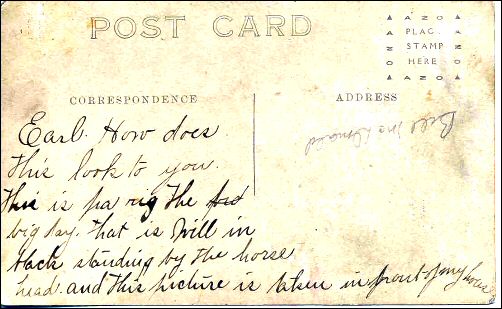 POST CARD
AZO
PLACE
STAMP
HERE
AZO
CORRESPONDENCE
ADDRESS
Earl. How does
this look to you.
this is pa rig the
big day. that is Will in
back standing by the horse
head and this picture is taken in front of my house
Bill